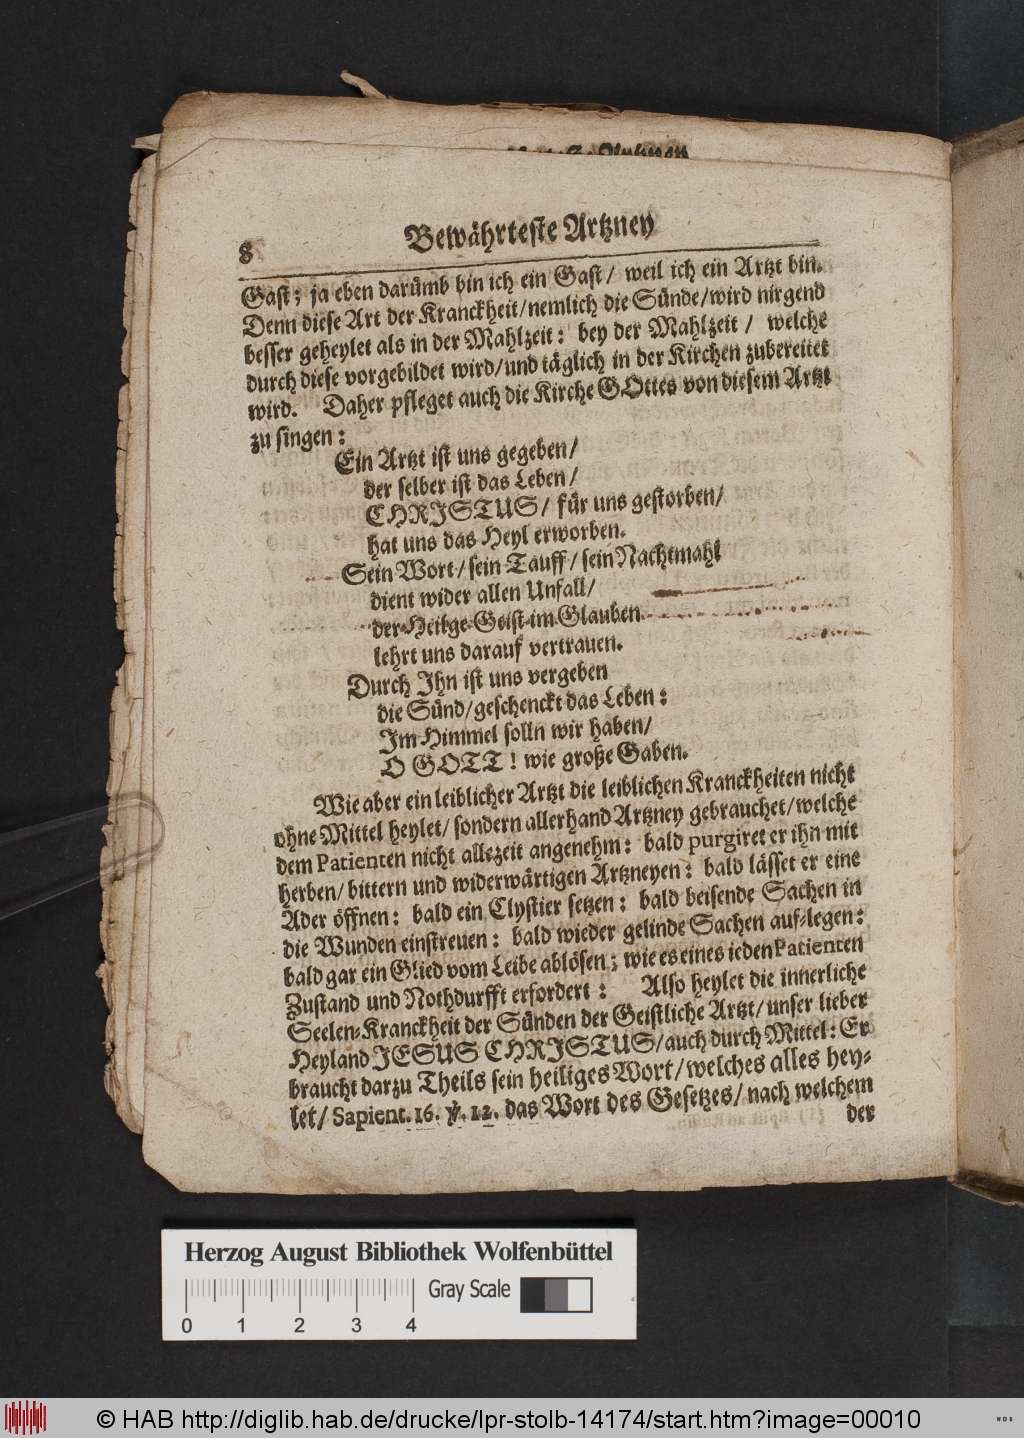 8
Bewährteste Artzney
Gast; ja eben darümb bin ich ein Gast/ weil ich ein Artzt bin.
Denn diese Art der Kranckheit/nemlich die Sünde/wird nirgend
besser geheylet als in der Mahlzeit: bey der Mahlzeit / welche
durch diese vorgebildet wird/und täglich in der Kirchen zubereitet
wird. Daher pfleget auch die Kirche GOttes von diesem Artzt
zu singen:
Ein Artzt ist uns gegeben/
der selber ist das Leben/
CHRISTUS/ für uns gestorben/
hat uns das Heyl erworben.
Sein Wort/sein Tauff/sein Nachtmahl
dient wider allen Unfall/
der Heilge Geist im Glauben
lehrt uns darauf vertrauen.
Durch Ihn ist uns vergeben
die Sünd/geschenckt das Leben:
Im Himmel solln wir haben/
O GOTT! wie große Gaben.
Wie aber ein leiblicher Artzt die leiblichen Kranckheiten nicht
ohne Mittel heylet/sondern allerhand Artzney gebrauchet/welche
dem Patienten nicht allezeit angenehm: bald purgiret er ihn mit
herben/bittern und widerwärtigen Artzneyen: bald lässet er eine
Ader öffnen: bald ein Clystier setzen: bald beisende Sachen in
die Wunden einstreuen: bald wieder gelinde Sachen auf-legen:
bald gar ein Glied vom Leibe ablösen; wie es eines ieden Patienten
Zustand und Nothdurfft erfordert: Also heylet die innerliche
Seelen-Kranckheit der Sünden der Geistliche Artzt/unser lieber
Heyland JESUS CHRISTUS/auch durch Mittel: Er
braucht darzu Theils sein heiliges Wort/welches alles hey-
let/ Sapient. 16. ℣. 12. das Wort des Gesetzes/nach welchem
der
Herzog August Bibliothek Wolfenbüttel
Gray Scale
0 1 2 3 4
© HAB http://diglib.hab.de/drucke/lpr-stolb-14174/start.htm?image=00010